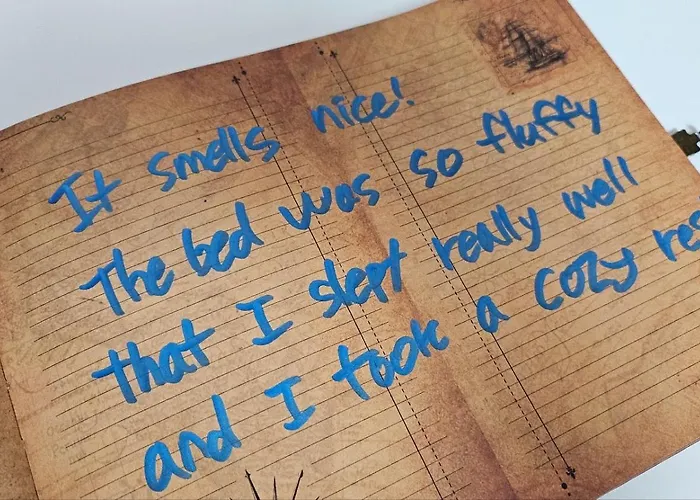 It smells nice!
The bed was so fluffy
that I slept really well
and I took a cozy